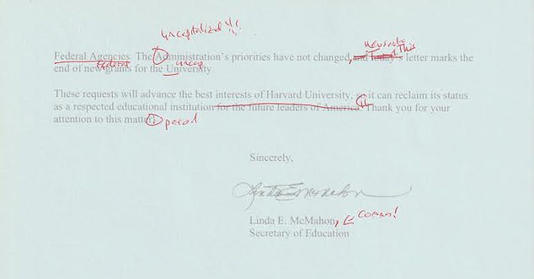 uncapitalized !!!
Federal Agencies. The Administration's priorities have not changed, and today's letter marks the
This
federal
uncap
end of new grants for the University.
These requests will advance the best interests of Harvard University, so it can reclaim its status
as a respected educational institution for the future leaders of America. Thank you for your
attention to this matter!
period
Sincerely,
Linda E. McMahon
Linda E. McMahon, comma!
Secretary of Education